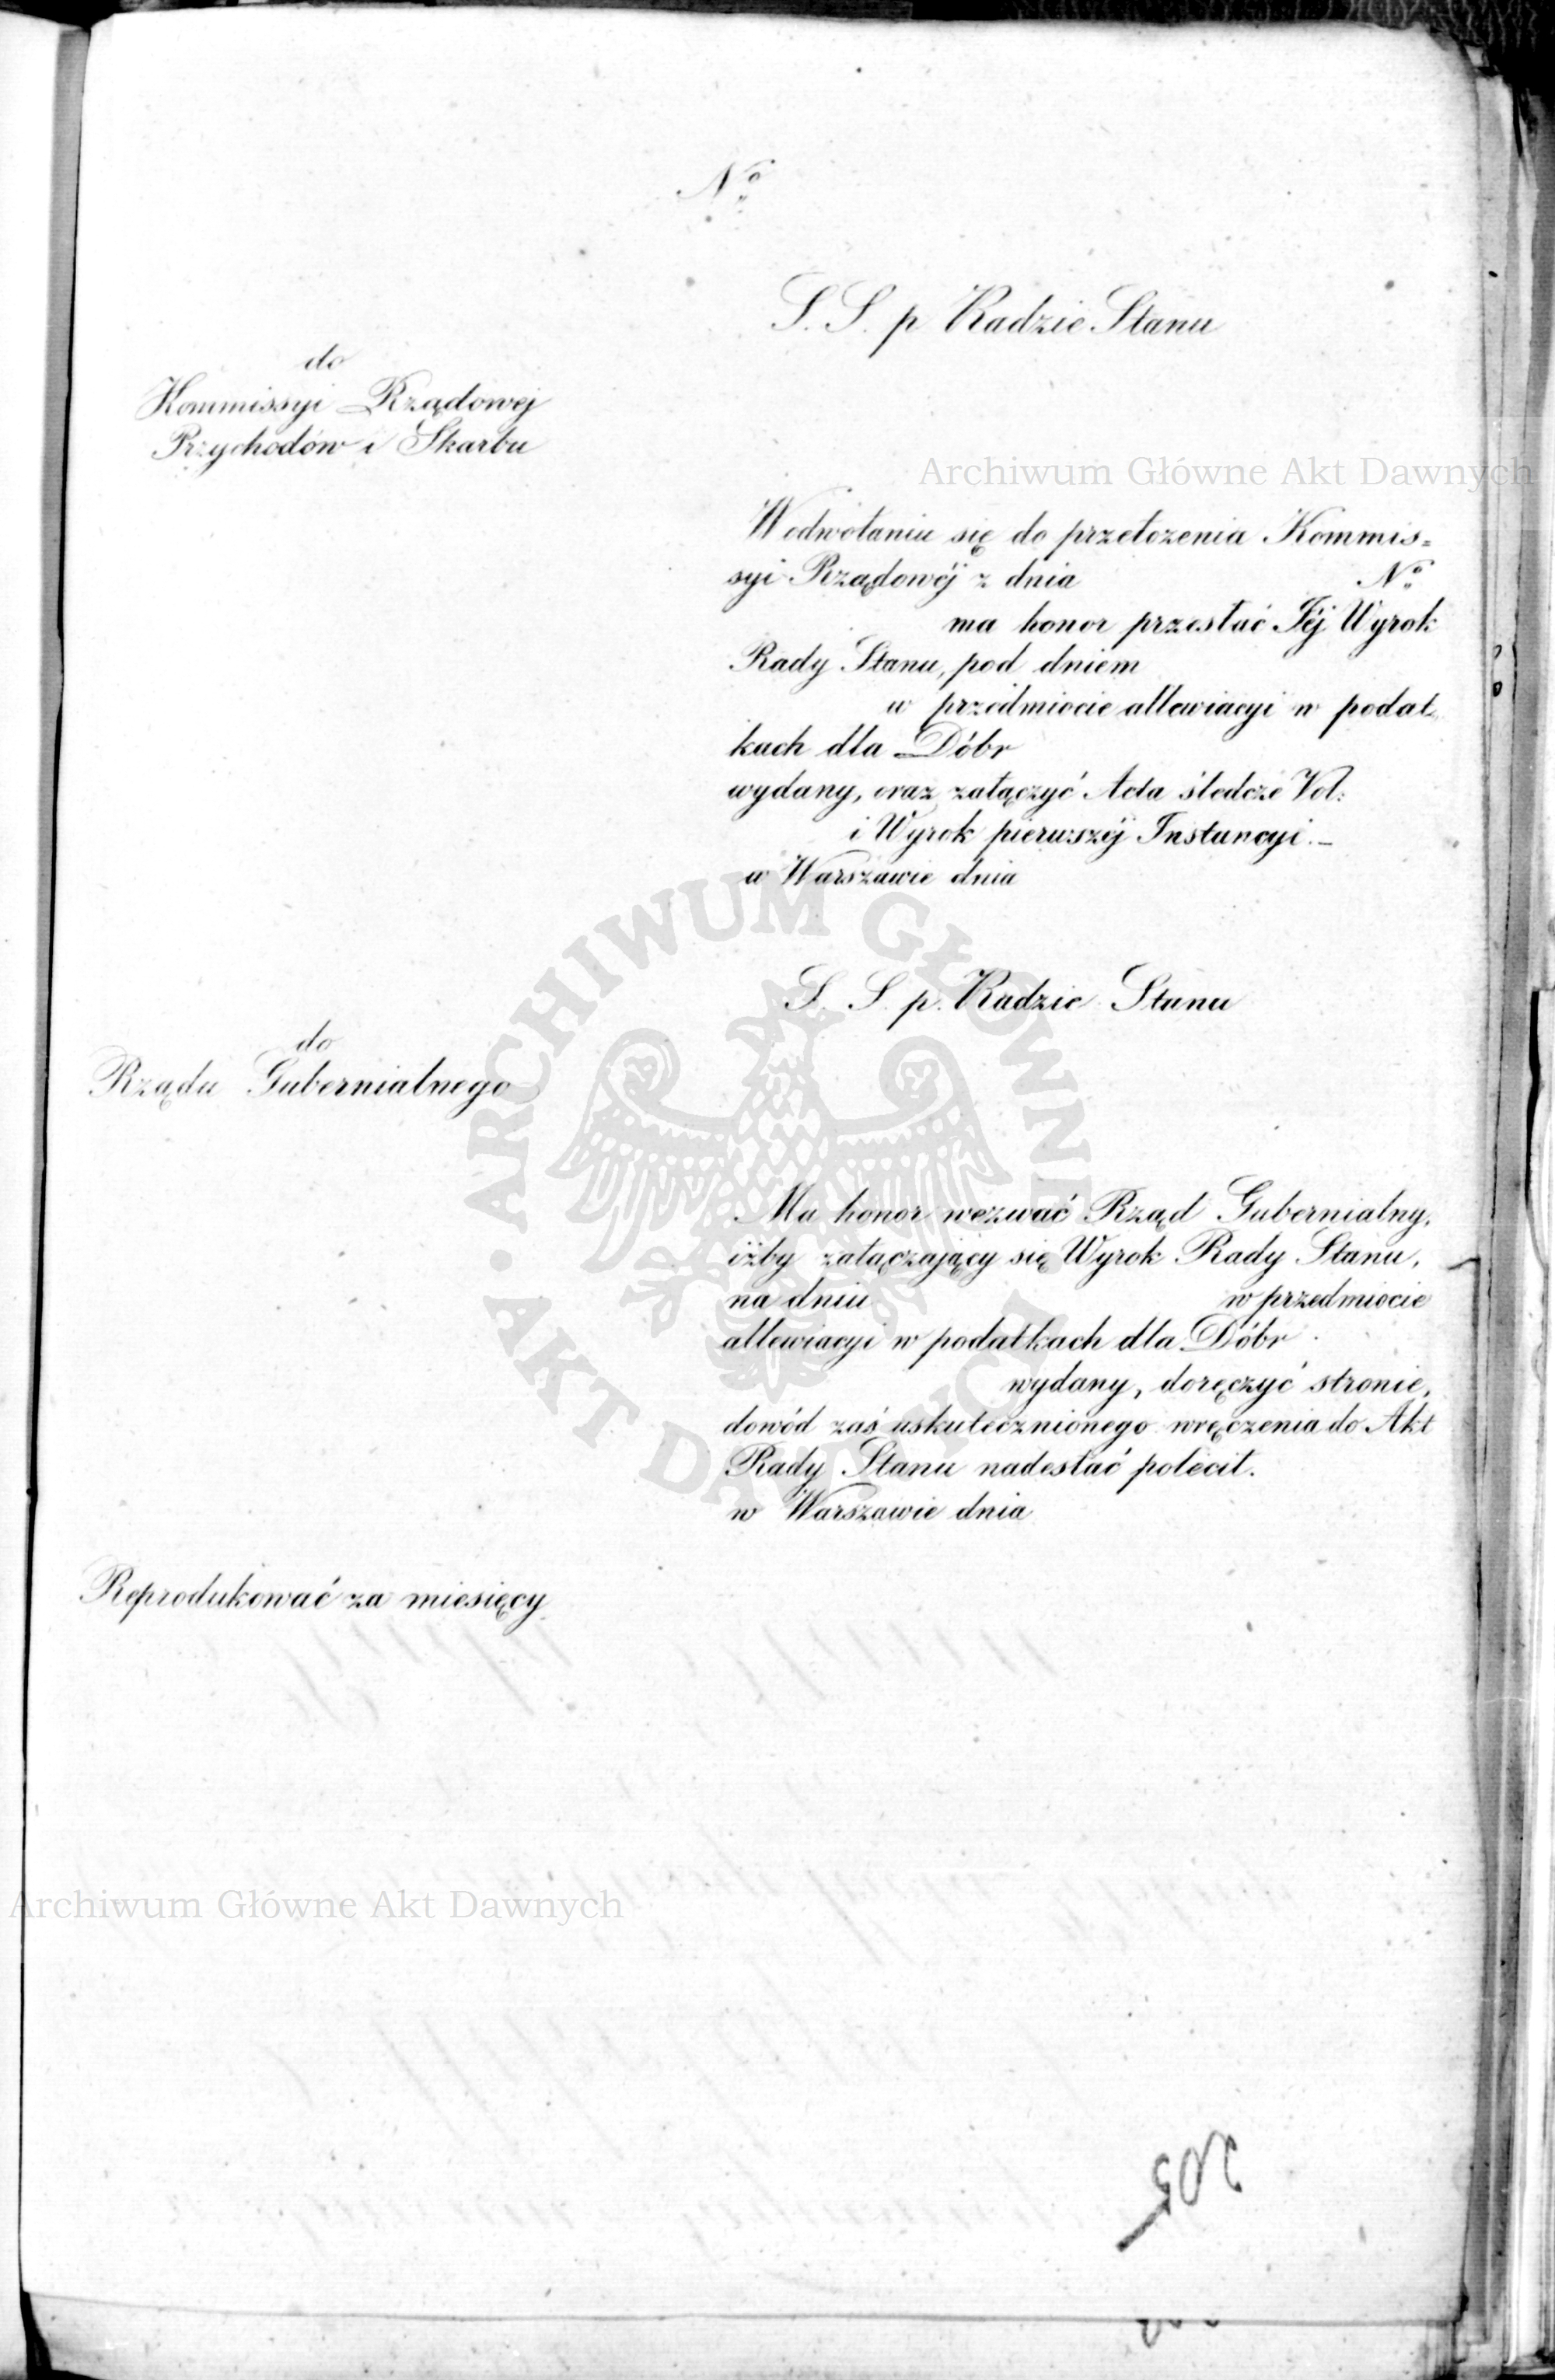 Nº
S. S. p Radzie Stanu
do
Kommissyi Rządowej
Przychodów i Skarbu
Archiwum Główne Akt Dawnych
W odwołaniu się do przełożenia Kommis=
syi Rządowéj z dnia Nº
ma honor przesłać Jéj Wyrok
Rady Stanu, pod dniem
w przedmiocie allewiacyi w podat=
kach dla Dóbr
wydany, oraz załączyć Acta śledcze Vol:
i Wyrok pierwszéj Instancyi._
w Warszawie dnia
S. S. p. Radzie Stanu
do
Rządu Gubernialnego
Ma honor wezwać Rząd Gubernialny,
iżby załączający się Wyrok Rady Stanu,
na dniu w przedmiocie
allewiacyi w podatkach dla Dóbr
wydany, doręczyć stronie,
dowód zaś uskutecznionego wręczenia do Akt
Rady Stanu nadesłać polecił.
w Warszawie dnia
Reprodukować za miesięcy
ARCHIWUM GŁÓWNE
AKT DAWNYCH
Archiwum Główne Akt Dawnych
205